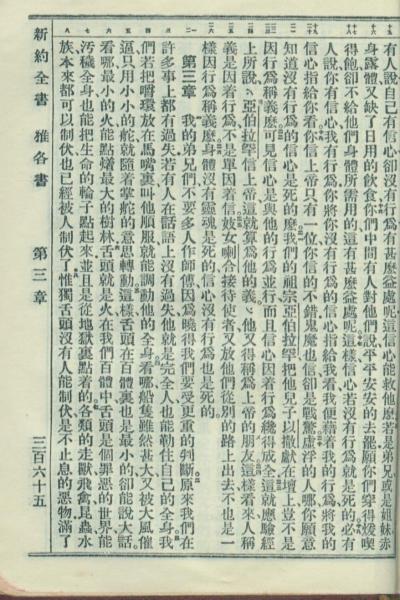 有人說自己有信心卻沒有行爲有甚麼益處呢這信心能救他麽若是弟兄或是姐妹赤
身露體又缺了日用的飲食你們中間有人對他們說平平安安的去罷願你們穿得煖喫
得飽卻不給他們身體所需用的這有甚麼益處呢這樣信心若沒有行爲就是死的必有
人說你有信心我有行爲你將你沒有行爲的信心指給我看我便藉着我的行爲將我的
信心指給你看你信上帝只有一位你信的不錯鬼魔也信卻是戰驚虛浮的人哪你願意
知道沒有行爲的信心是死的麽我們的祖宗亞伯拉罕把他兒子以撒獻在壇上豈不是
因行爲稱義麽可見信心是與他的行爲並行而且信心因着行爲纔得成全這就應驗經
上所說亞伯拉罕信上帝這就算爲他的義他又得稱爲上帝的朋友這樣看來人稱
義是因着行爲不是單因着信妓女喇合接待使者又放他們從別的路上出去不也是一
樣因行爲稱義麽身體沒有靈魂是死的信心沒有行爲也是死的
第三章 我的弟兄們不要多人作師傅因爲曉得我們要受更重的判斷原來我們在
許多事上都有過失若有人在話語上沒有過失他就是完全人也能勒住自己的全身我
們若把嚼環放在馬嘴裏叫他順服就能調動他的全身看哪船隻雖然甚大又被大風催
逼只用小小的舵就隨着掌舵的意思轉動這樣舌頭在百體裏也是最小的卻能說大話
看哪最小的火能點燃最大的樹林舌頭就是火在我們百體中舌頭是個罪惡的世界能
汚穢全身也能把生命的輪子點起來並且是從地獄裏點着的各類的走獸飛禽昆蟲水
族本來都可以制伏也已經被人制伏了惟獨舌頭沒有人能制伏是不止息的惡物滿了
新約全書 雅各書 第三章 三百六十五